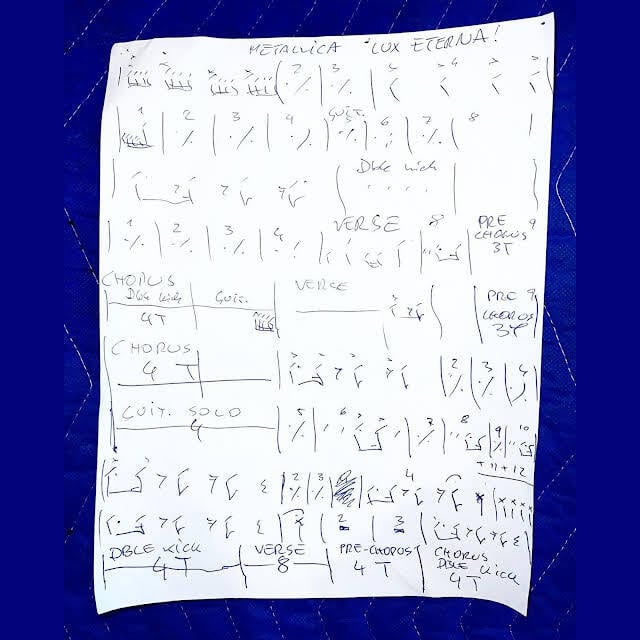 METALLICA LUX ETERNA!
2 3 4
1 2 3 4 GUIT. 5 6 7 8
Dble kick
VERSE 8 PRE CHORUS 9 3T
1 2 3 4
CHORUS
Dble kick Guit. VERSE PRE 9 CHORUS 3T
4T
CHORUS
4 T 2 3 4
GUIT. SOLO
4 5 6 7 8 9 10
+11+12
2 3 4
2 3
DBLE KICK VERSE PRE-CHORUS CHORUS
4T 8 4T DBLE KICK
4T